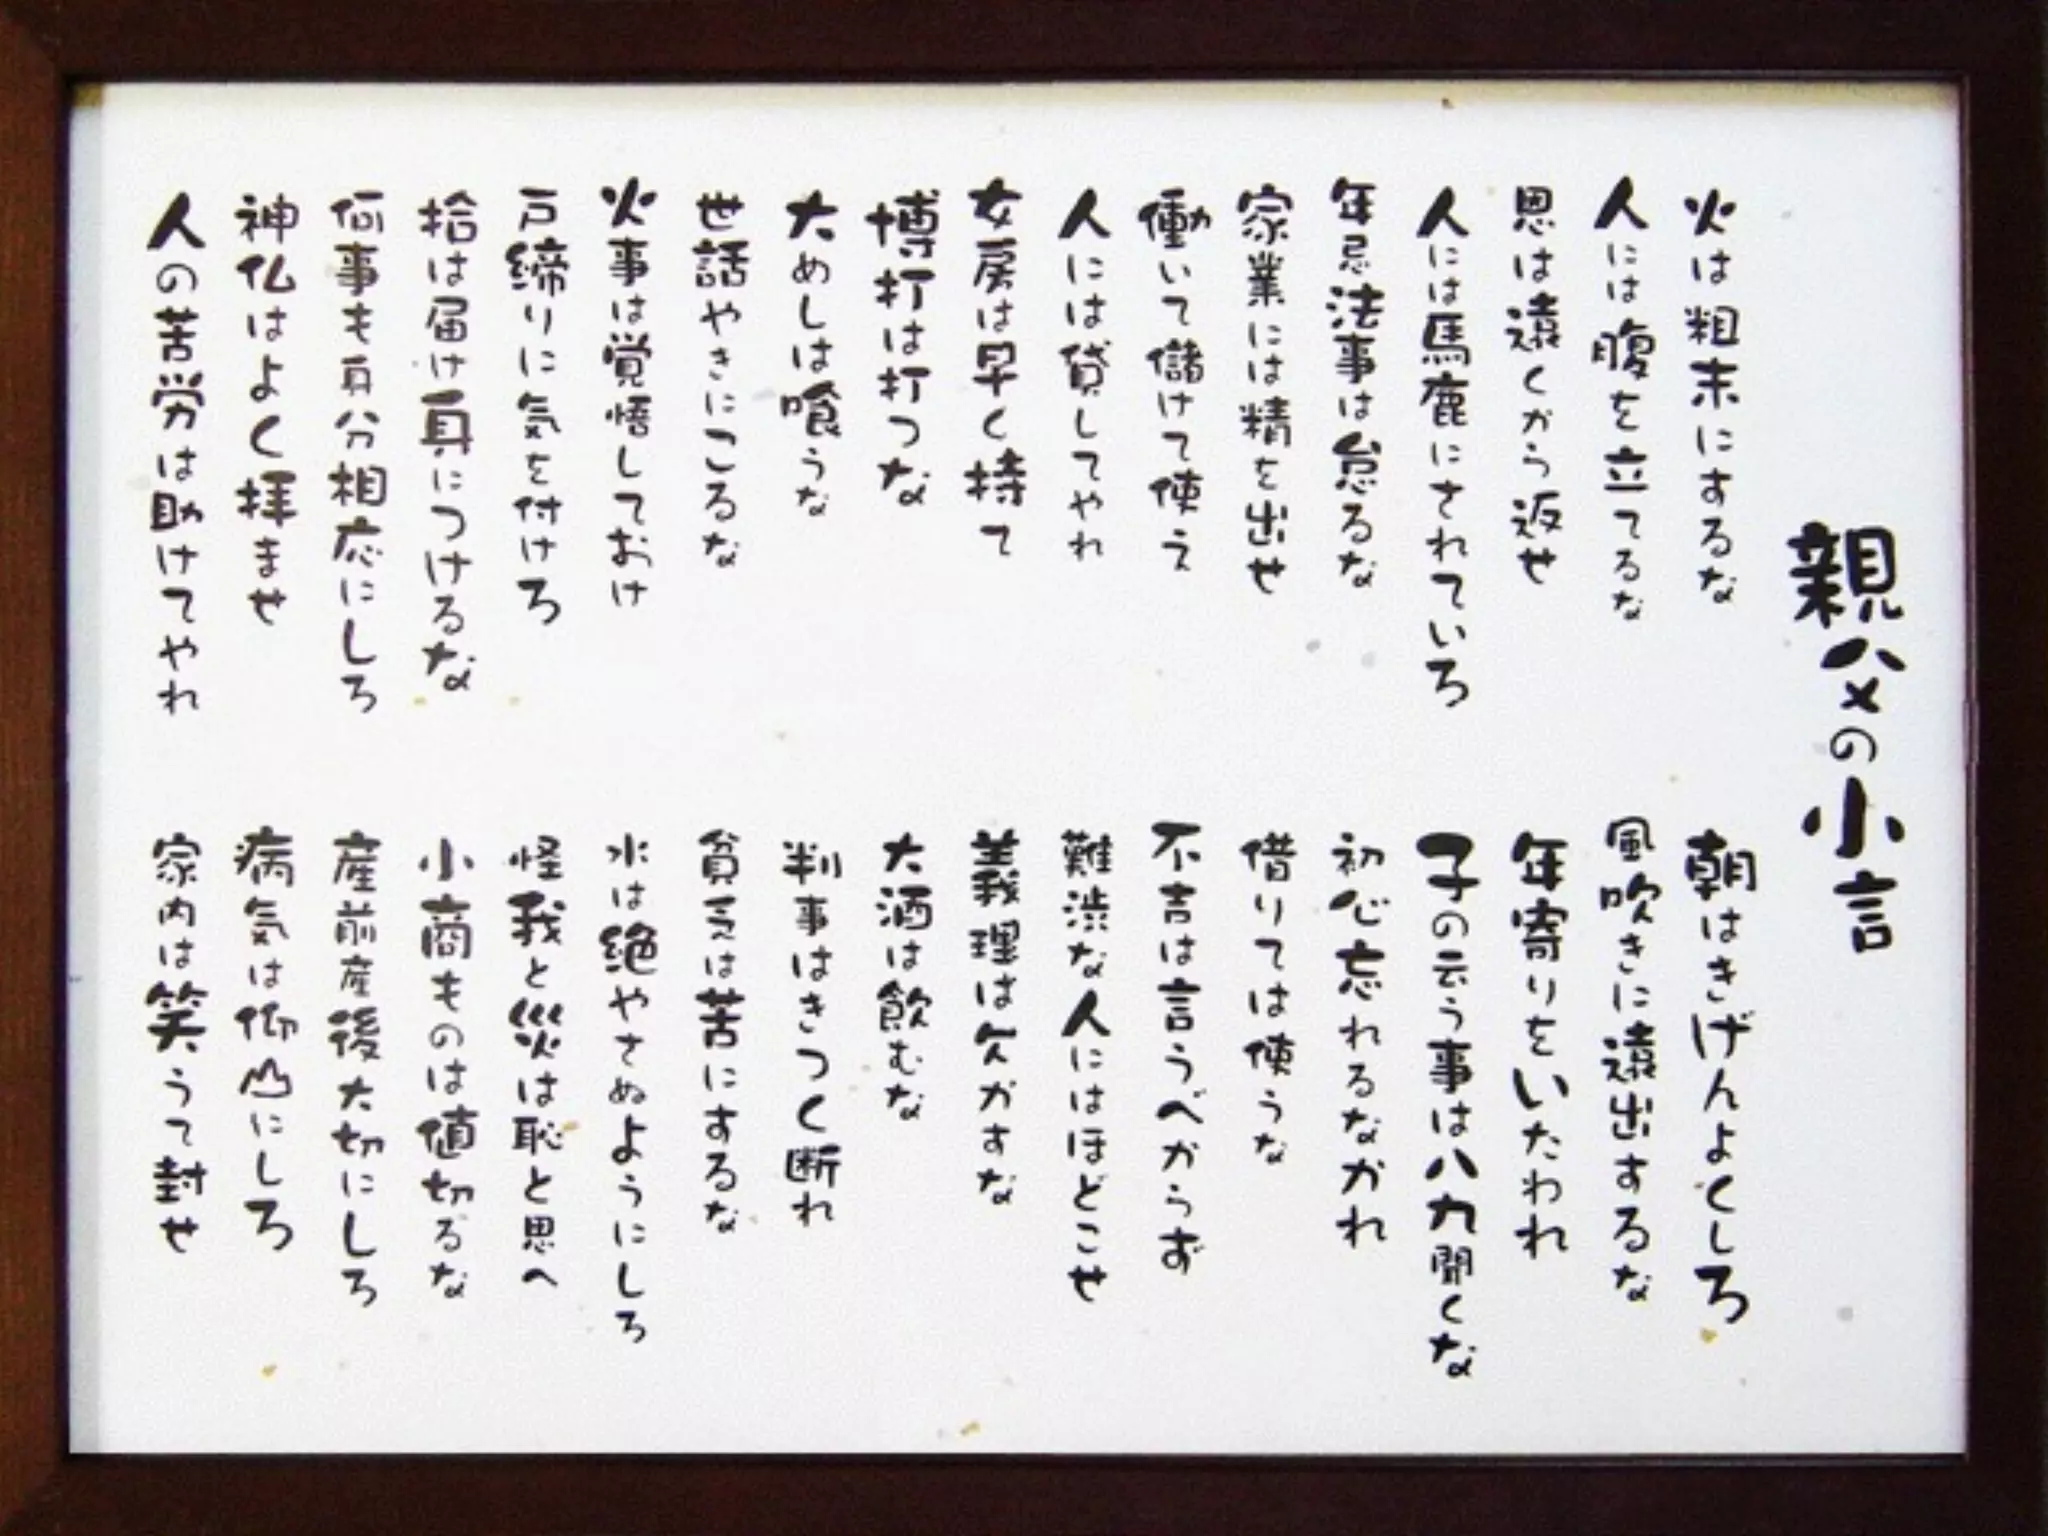 親父の小言
火は粗末にするな
朝はきげんよくしろ
人には腹を立てるな
風吹きに遠出するな
恩は遠くから返せ
年寄りをいたわれ
人には馬鹿にされていろ
子の云う事は八九聞くな
年忌法事は怠るな
初心忘れるなかれ
家業には精を出せ
借りては使うな
働いて儲けて使え
不吉は言うべからず
人には貸してやれ
難渋な人にはほどこせ
女房は早く持て
義理は欠かすな
博打は打つな
大酒は飲むな
大めしは喰うな
判事はきつく断れ
世話やきにこるな
貧乏は苦にするな
火事は覚悟しておけ
水は絶やさぬようにしろ
戸締りに気を付けろ
怪我と災は恥と思へ
拾は届け身につけるな
小商ものは値切るな
何事も身分相応にしろ
産前産後大切にしろ
神仏はよく拝ませ
病気は仰山にしろ
人の苦労は助けてやれ
家内は笑うて封せ